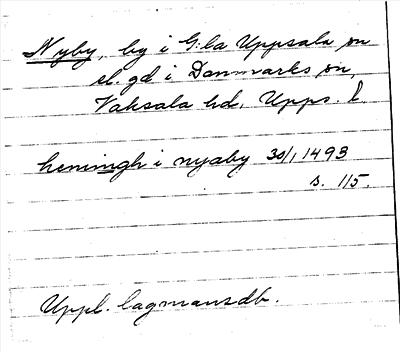 Nyby, by i G:la Uppsala sn
el. gd i Danmarks sn,
Vaksala hd, Upps. l.
heningh i nyaby 30/1 1493
s. 115.
Uppl. lagmansdb.